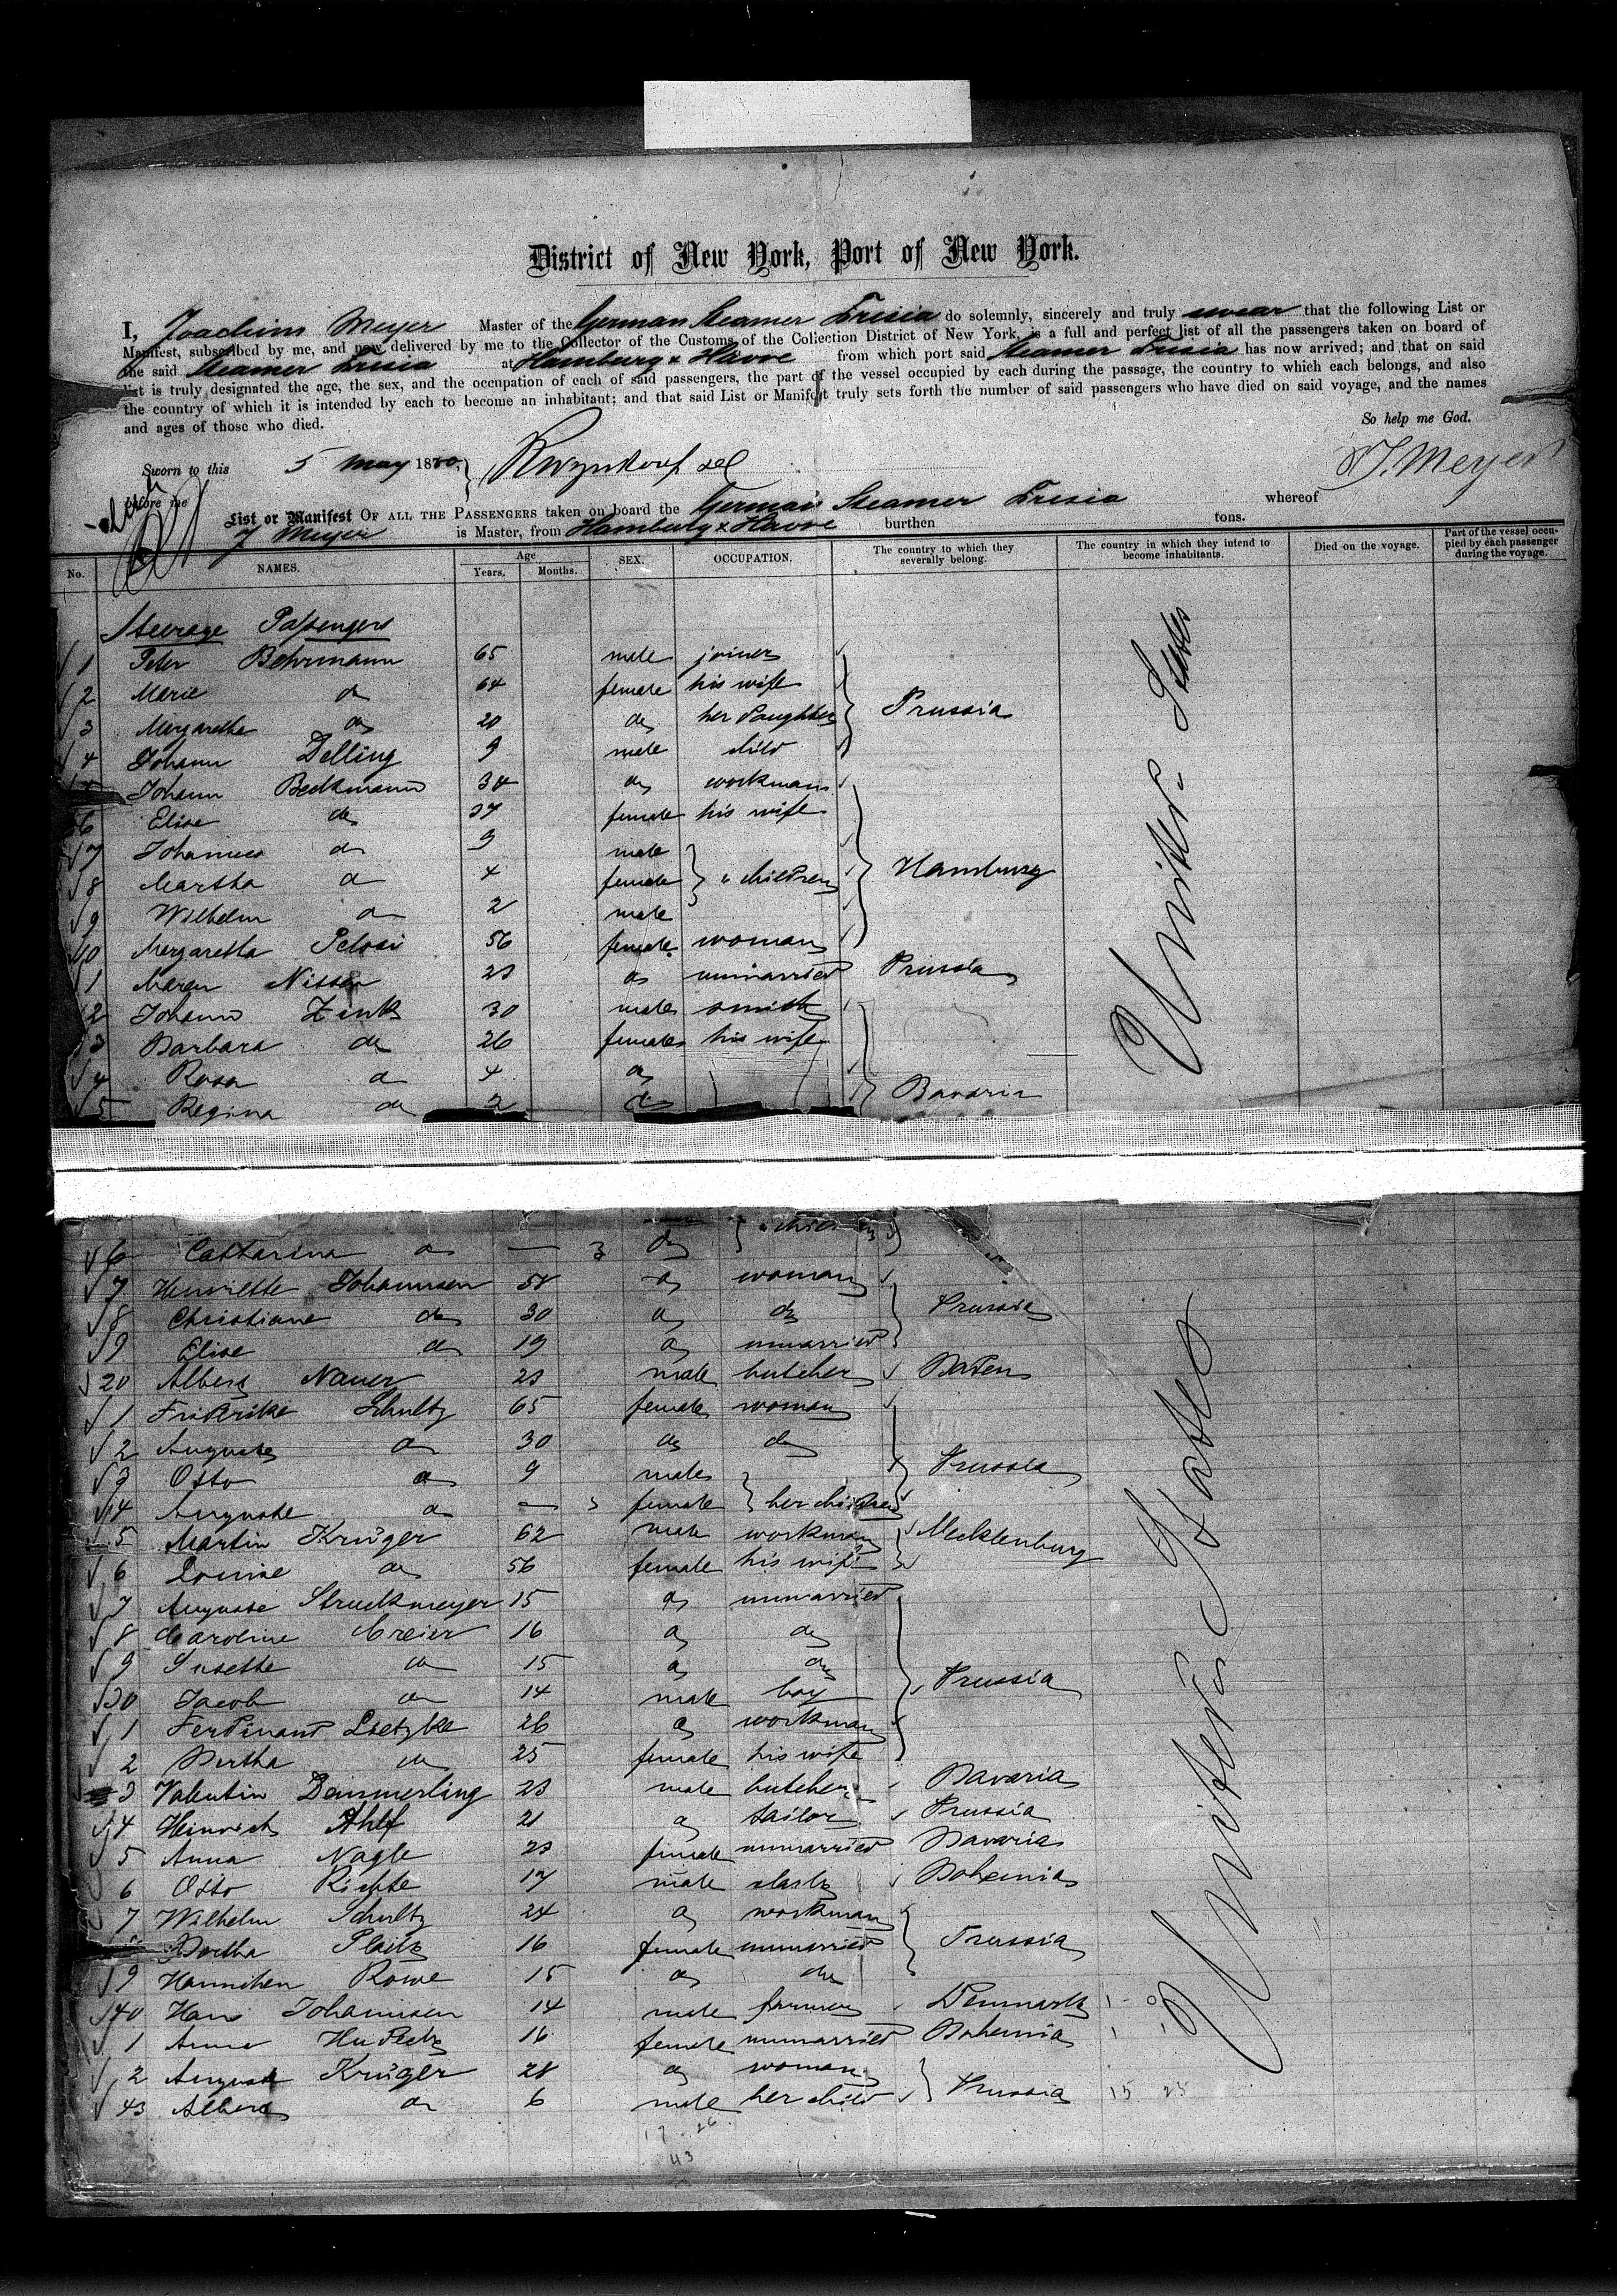 District of New York, Port of New York.
I, Joachim Meyer Master of the German Steamer Frisia do solemnly, sincerely and truly swear that the following List or
Manifest, subscribed by me, and now delivered by me to the Collector of the Customs of the Collection District of New York, is a full and perfect list of all the passengers taken on board of
the said Steamer Frisia at Hamburg & Havre from which port said Steamer Frisia has now arrived; and that on said
list is truly designated the age, the sex, and the occupation of each of said passengers, the part of the vessel occupied by each during the passage, the country to which each belongs, and also
the country of which it is intended by each to become an inhabitant; and that said List or Manifest truly sets forth the number of said passengers who have died on said voyage, and the names
and ages of those who died. So help me God.
Sworn to this 5 May 1880, J. Meyer
before me
List or Manifest OF ALL THE PASSENGERS taken on board the German Steamer Frisia whereof
J Meyer is Master, from Hamburg & Havre burthen tons.
No. NAMES. Age Years. Months. SEX. OCCUPATION. The country to which they severally belong. The country in which they intend to become inhabitants. Died on the voyage. Part of the vessel occupied by each passenger during the voyage.
Steerage Passengers
1 Peter Behrmann 65 male joiner
2 Marie do 64 female his wife
3 Margaretha do 20 do her Daughter Prussia
4 Johann Delling 9 male child
Johann Beckmann 34 do workman
6 Elise do 37 female his wife
7 Johannes do 9 male
8 Martha do 4 female children Hamburg
9 Wilhelm do 2 male
10 Margaretha 56 female woman
1 Maren Nissen 23 do unmarried Prussia
2 Johann Zink 30 male smith
3 Barbara do 26 female his wife
4 Rosa do 4 do
5 Regina do 2 do Bavaria
United States
6 Catharina do — 3 do
7 Henriette Johannsen 58 do woman
8 Christiane do 30 do do Prussia
9 Elise do 19 do unmarried
20 Albert Nauer 23 male butcher Baden
1 Friderike Schultz 65 female woman
2 Auguste do 30 do do
3 Otto do 9 male Prussia
4 Auguste do — female her children
5 Martin Krüger 62 male workman Mecklenburg
6 Louise do 56 female his wife
7 Auguste Struckmeyer 15 do unmarried
8 Caroline 16 do do
9 Susette do 15 do do
30 Jacob do 14 male boy Prussia
1 Ferdinand Lietzke 26 do workman
2 Bertha do 25 female his wife
3 Valentin Demmerling 23 male butcher Bavaria
4 Heinrich Ahlf 21 do tailor Prussia
5 Anna Nagle 23 female unmarried Bavaria
6 Otto Richte 17 male clerk Bohemia
7 Wilhelm Schultz 24 do workman
Bertha 16 female unmarried Prussia
9 Hannchen Rowe 15 do do
40 Hans Johannsen 14 male farmer Denmark
1 Anna 16 female unmarried Bohemia
2 Auguste Krüger 28 do woman
43 Albert do 6 male her child Prussia 15 25
United States
17 26
43